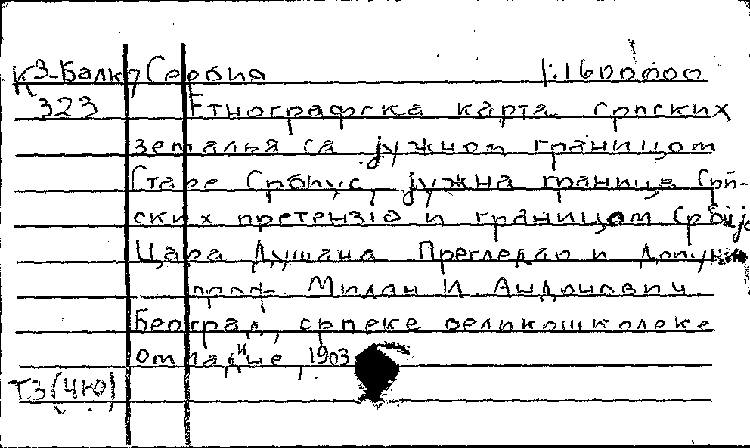 К3-Балк Сербия 1:1600000
323 Етнографска карта српских
земалья са jужном границом
Старе Србиjе, jужна граница Срп-
ских претензiа и границом Србиjе
Цара Душана Прегледао и допунио
проф. Милан И Андонович
Београд, српске великошколске
омладине, 1903
Т3(4Ю)